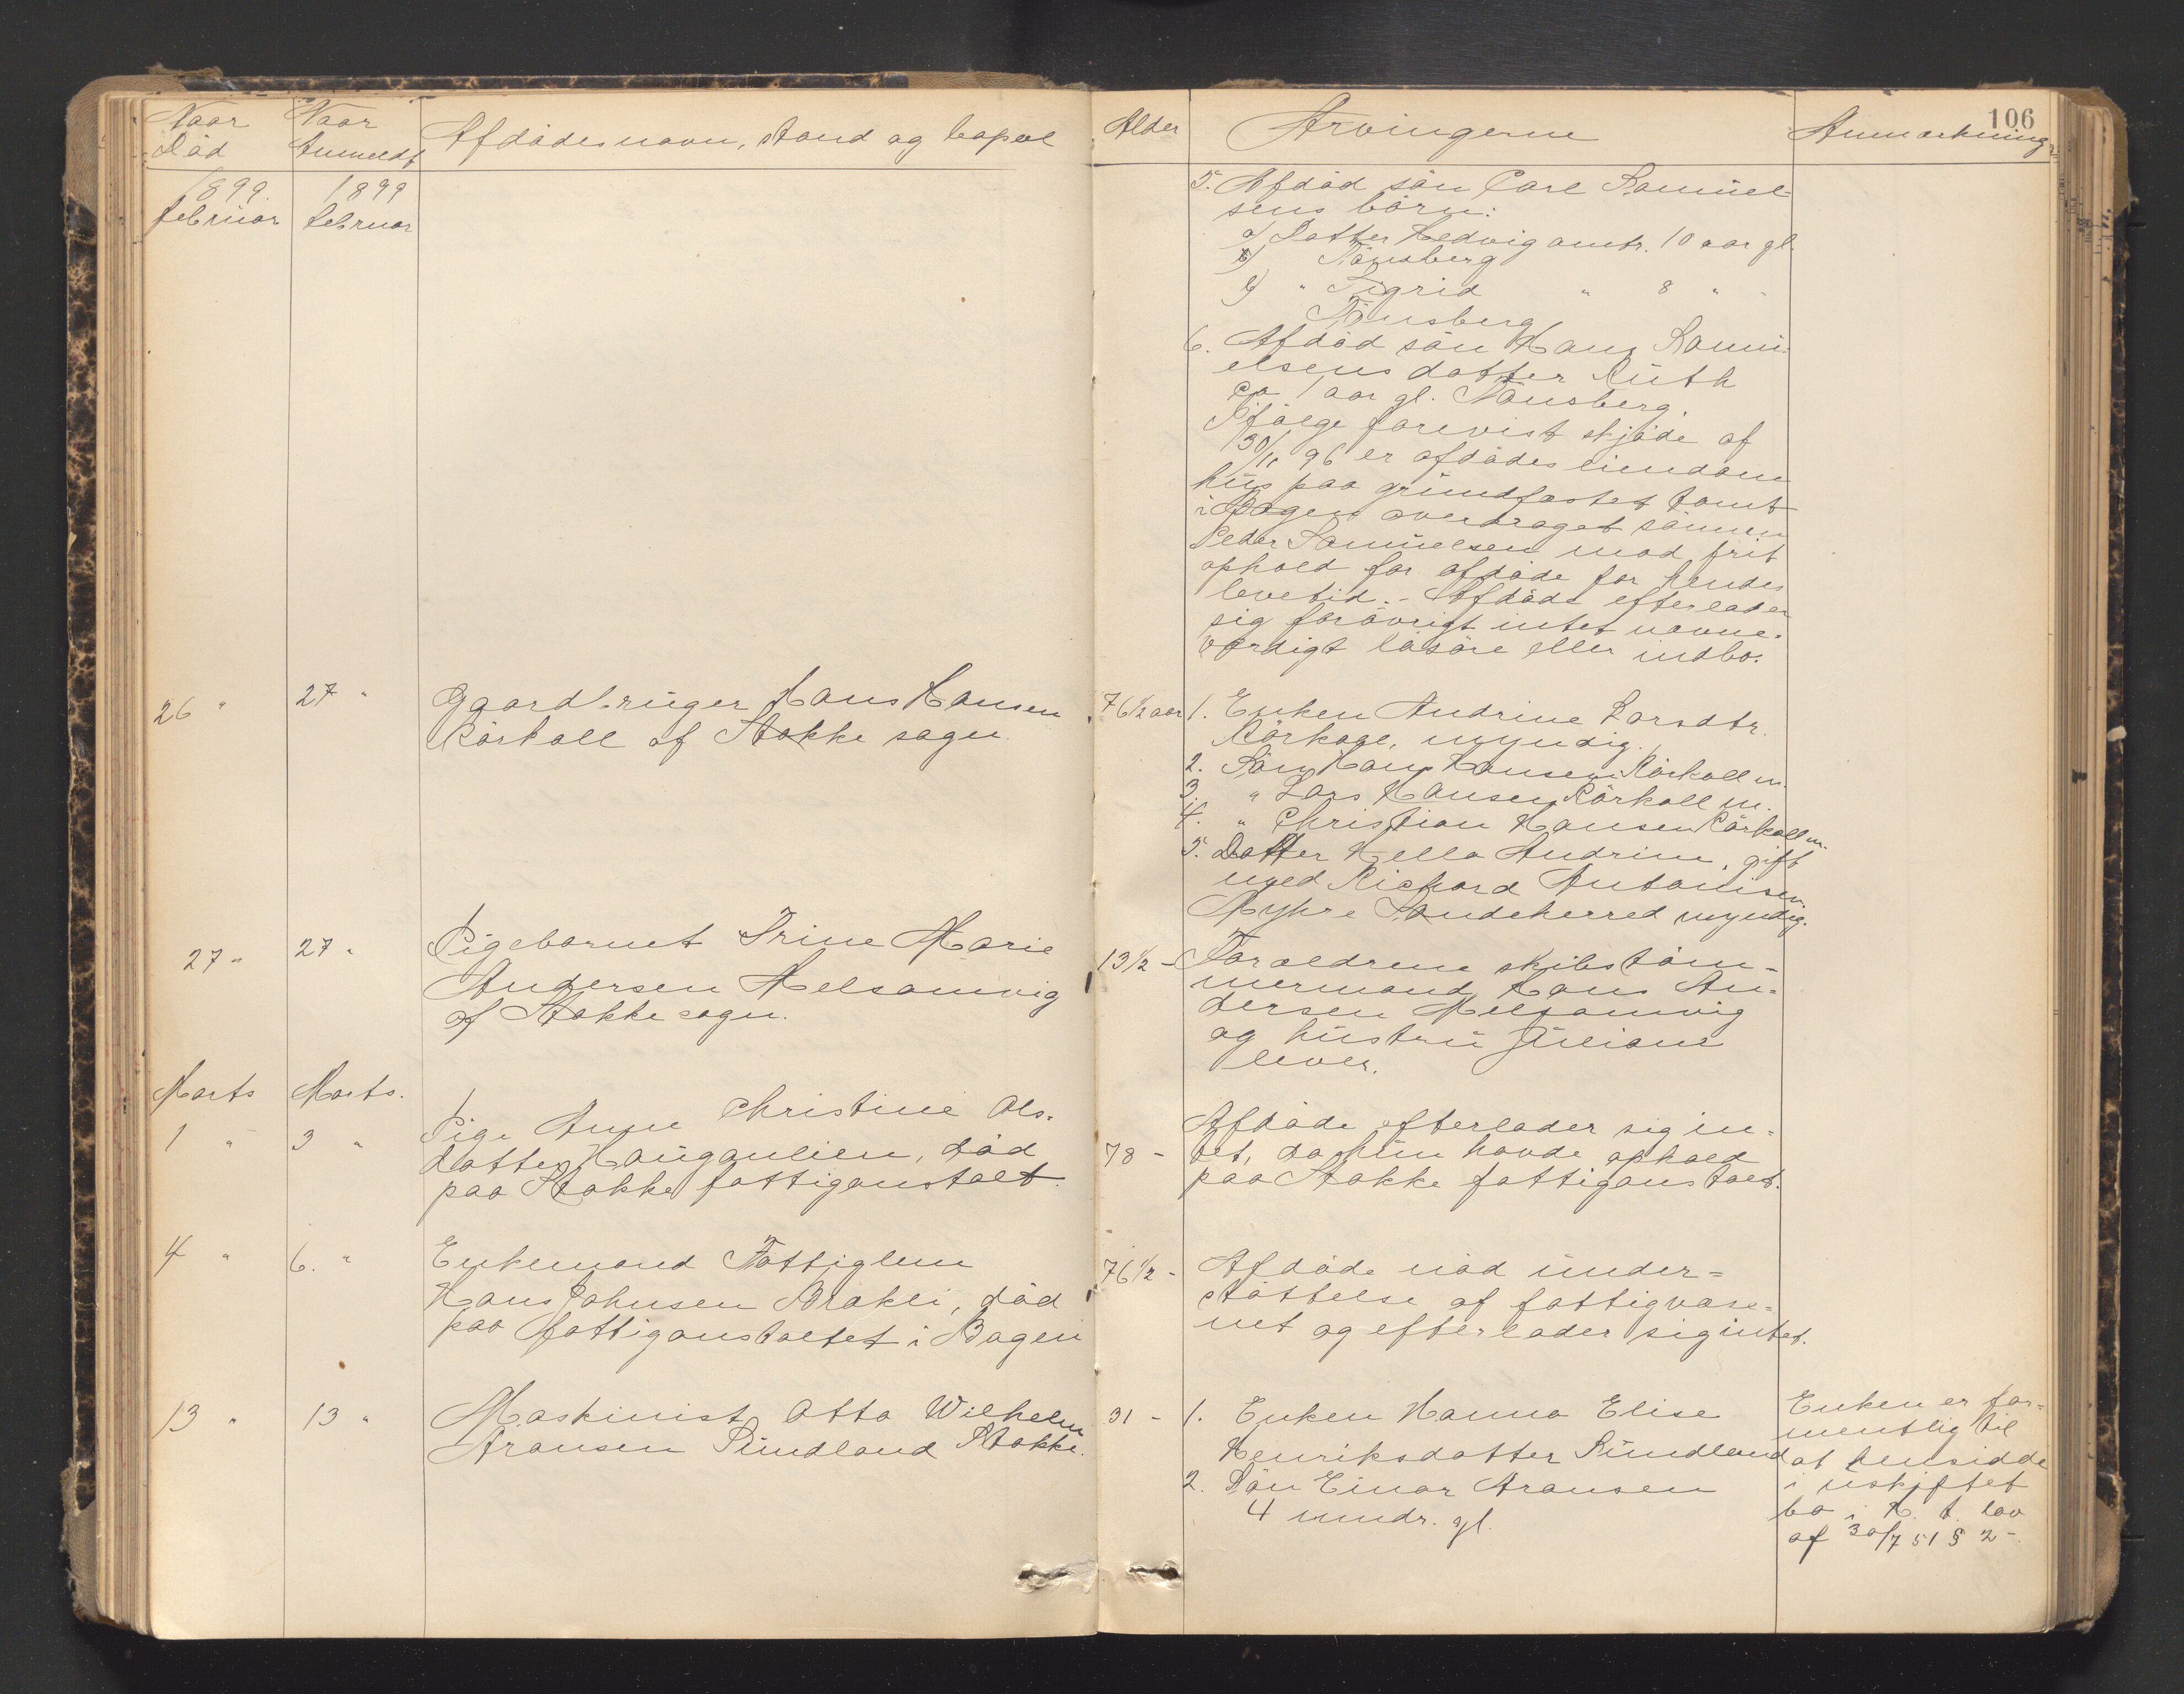 106
Naar Död
Naar Anmeldt
Afdödes navn, stand og bopæl
Alder
Arvingerne
Anmærkning
1899.
1899
februar
februar
5. Afdöd sön Carl Samuel-
sens börn:
a) Datter Hedvig omtr. 10 aar gl.
Tönsberg
b) " Sigrid " 8 " -
Tönsberg
6. Afdöd sön Hans Samu-
elsens datter Ruth
ca 1 aar gl. Tönsberg.
Ifölge forevist skjöde af
30/11 96 er afdödes eiendom
hus paa grundfæstet tomt
i Bogen overdraget sönnen
Peder Samuelsen mod frit
ophold for afdöde for hendes
levetid. - Afdöde efterlader
sig forövrigt intet nævne-
værdigt lösöre eller indbo.
26 "
27 "
Gaardbruger Hans Hansen
Rörkoll af Stokke sogn.
76 1/2 aar
1. Enken Andrine Larsdtr.
Rörkoll, myndig.
2. Sön Hans Hansen Rörkoll m.
3. " Lars Hansen Rörkoll m.
4. " Christian Hansen Rörkoll m.
5. Datter Hella Andrine, gift
med Richard Antonisen
Myhre Sandeherred myndig.
27 "
27 "
Pigebarnet Trine Marie
Andersen Melsomvig
af Stokke sogn.
13 1/2 -
Forældrene skibstöm-
mermand Hans An-
dersen Melsomvig
og hustru Juliane
lever.
Marts
Marts.
1 "
3 "
Pige Anne Christine Ols-
datter Hauganlien, död
paa Stokke fattiganstalt.
78 -
Afdöde efterlader sig in-
tet, da hun havde ophold
paa Stokke fattiganstalt.
4 "
6. "
Enkemand Fattiglem
Hans Johnsen Brakli, död
paa fattiganstaltet i Bogen
76 1/2 -
Afdöde nöd under-
stöttelse af fattigvæse-
net og efterlader sig intet.
13 "
13 "
Maskinist Otto Wilhelm
Aronsen Sundland Stokke.
31 -
1. Enken Hanna Elise
Henriksdatter Sundland
2. Sön Einar Aronsen
4 mndr. gl.
Enken er for-
mentlig til
at hensidde
i uskiftet
bo i H. t. lov
af 30/7 51 § 2 -.